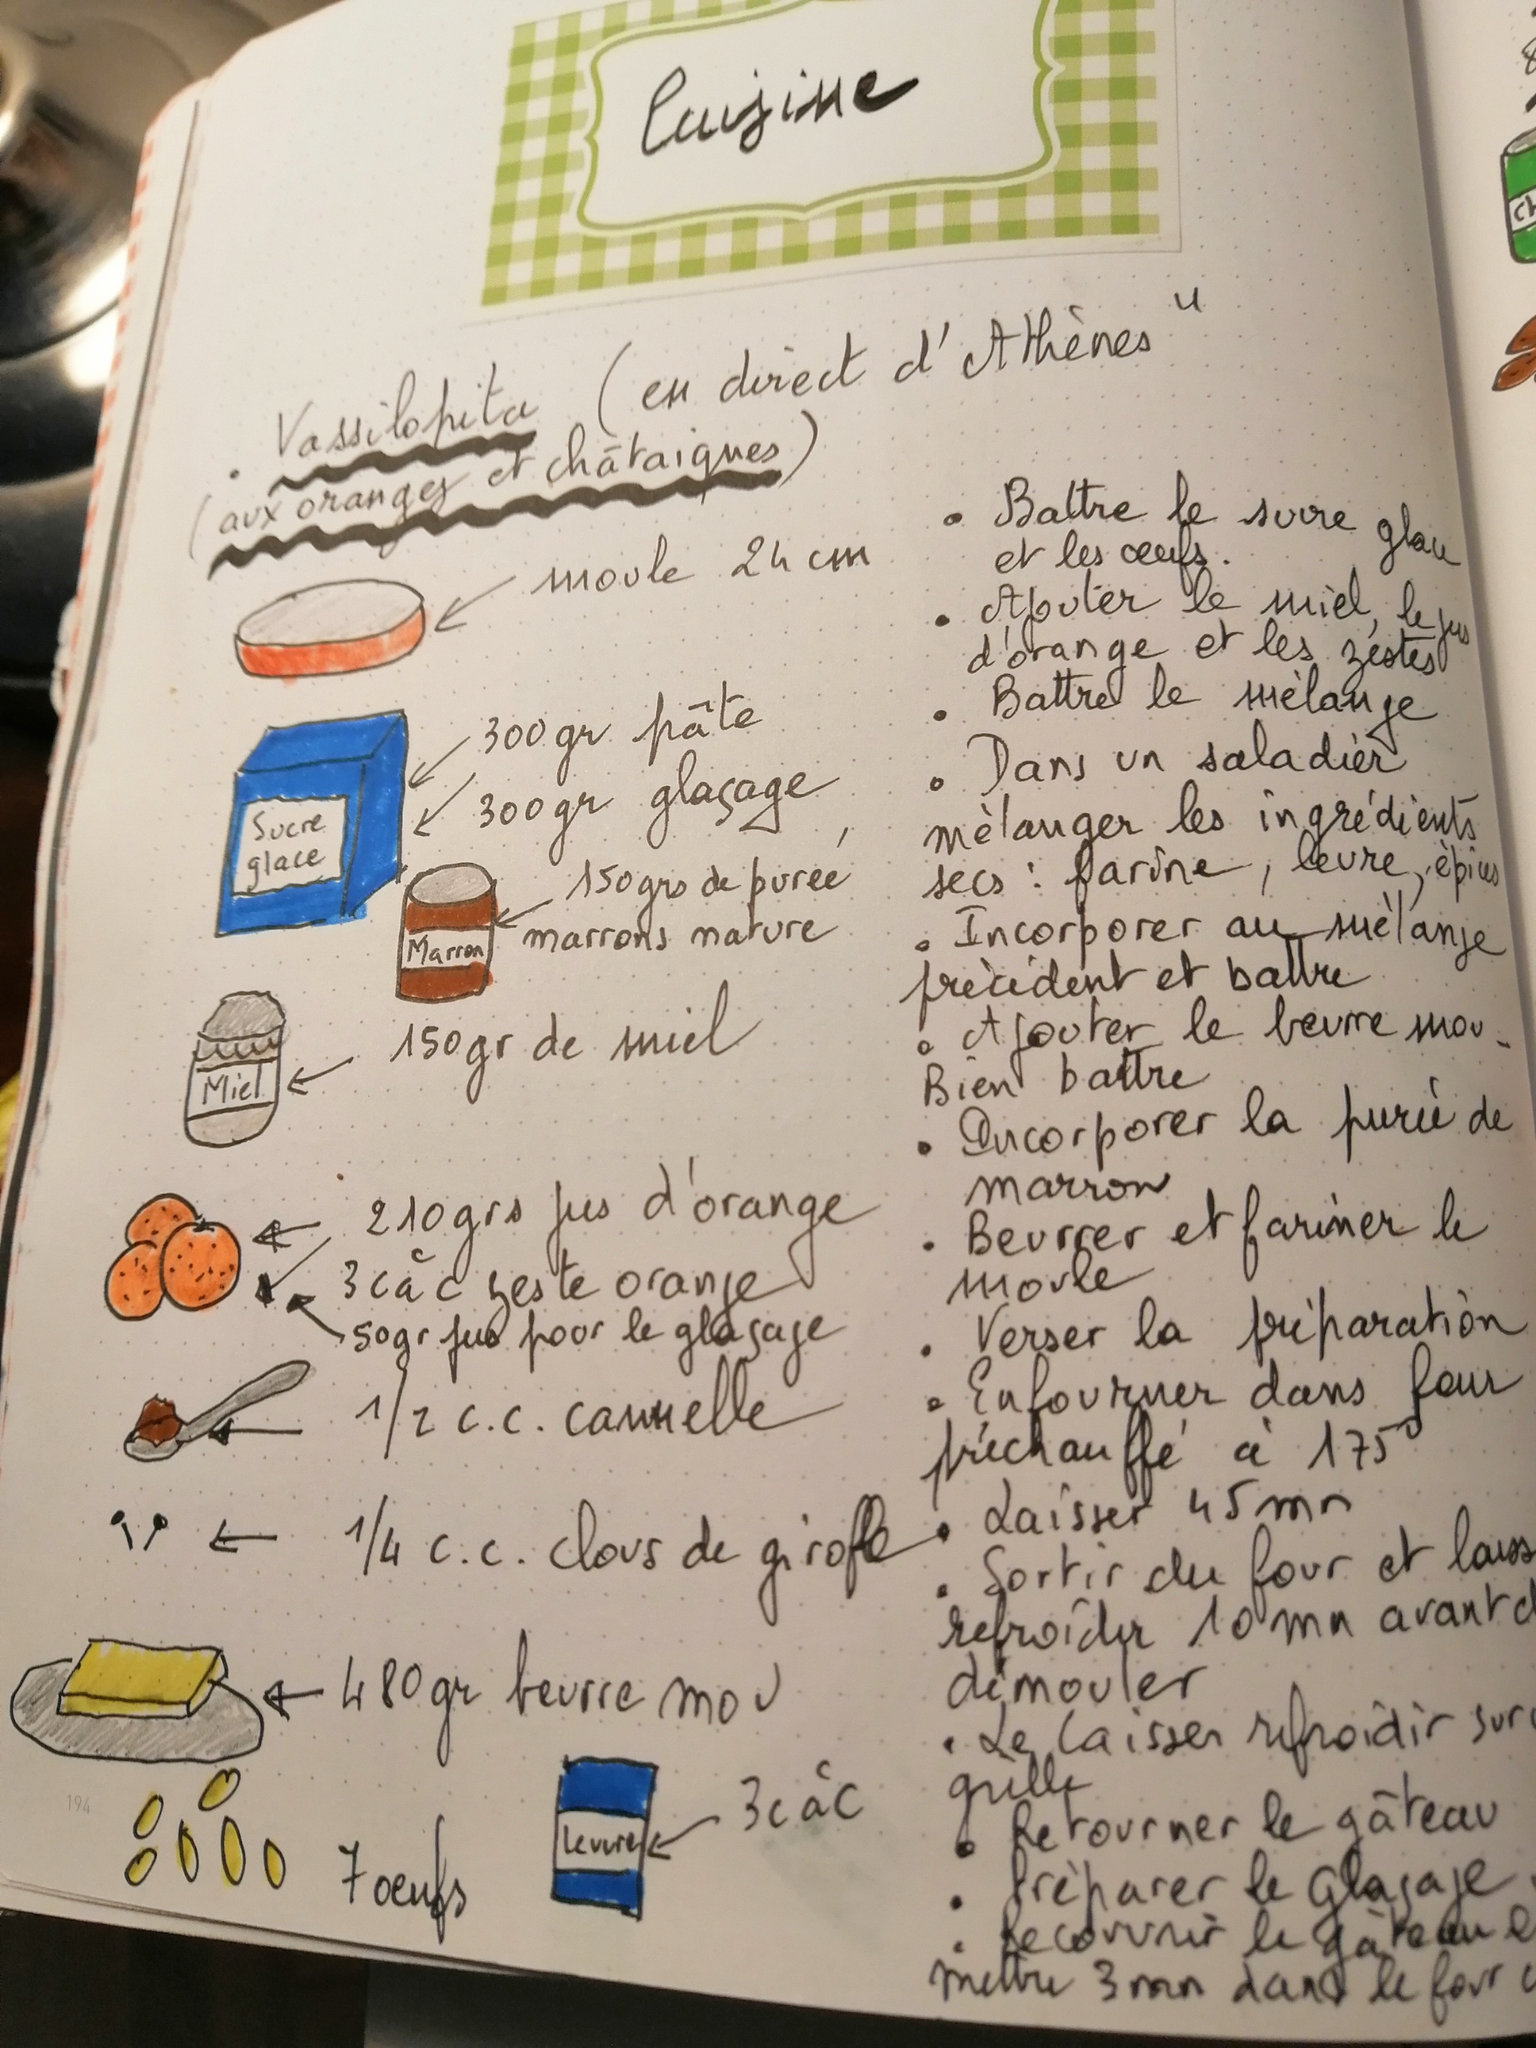 Cuisine
. Vassilopita (en direct d'Athènes"
(aux oranges et châtaignes)
moule 24 cm
300gr pâte
300gr glaçage
Sucre
glace
150grs de purée
marrons nature
Marron
150gr de miel
Miel
210grs jus d'orange
3 c à c zeste orange
50gr jus pour le glaçage
1/2 c.c. cannelle
1/4 c.c. clous de girofle
480gr beurre mou
194
7 oeufs
Levure
3 c à c
• Battre le sucre glace
et les œufs.
• Ajouter le miel, le jus
d'orange et les zestes
• Battre le mélange
• Dans un saladier
mélanger les ingrédients
secs : farine, levure, épices
. Incorporer au mélange
précédent et battre
• Ajouter le beurre mou.
Bien battre
• Incorporer la purée de
marron
• Beurrer et fariner le
moule
• Verser la préparation
• Enfourner dans four
préchauffé à 175°
• Laisser 45 mn
• Sortir du four et laiss
refroidir 10 mn avant d
démouler
• Le laisser refroidir sur
grille
• Retourner le gâteau
• Préparer le glaçage
• Recouvrir le gâteau
mettre 3 mn dans le four
Ch